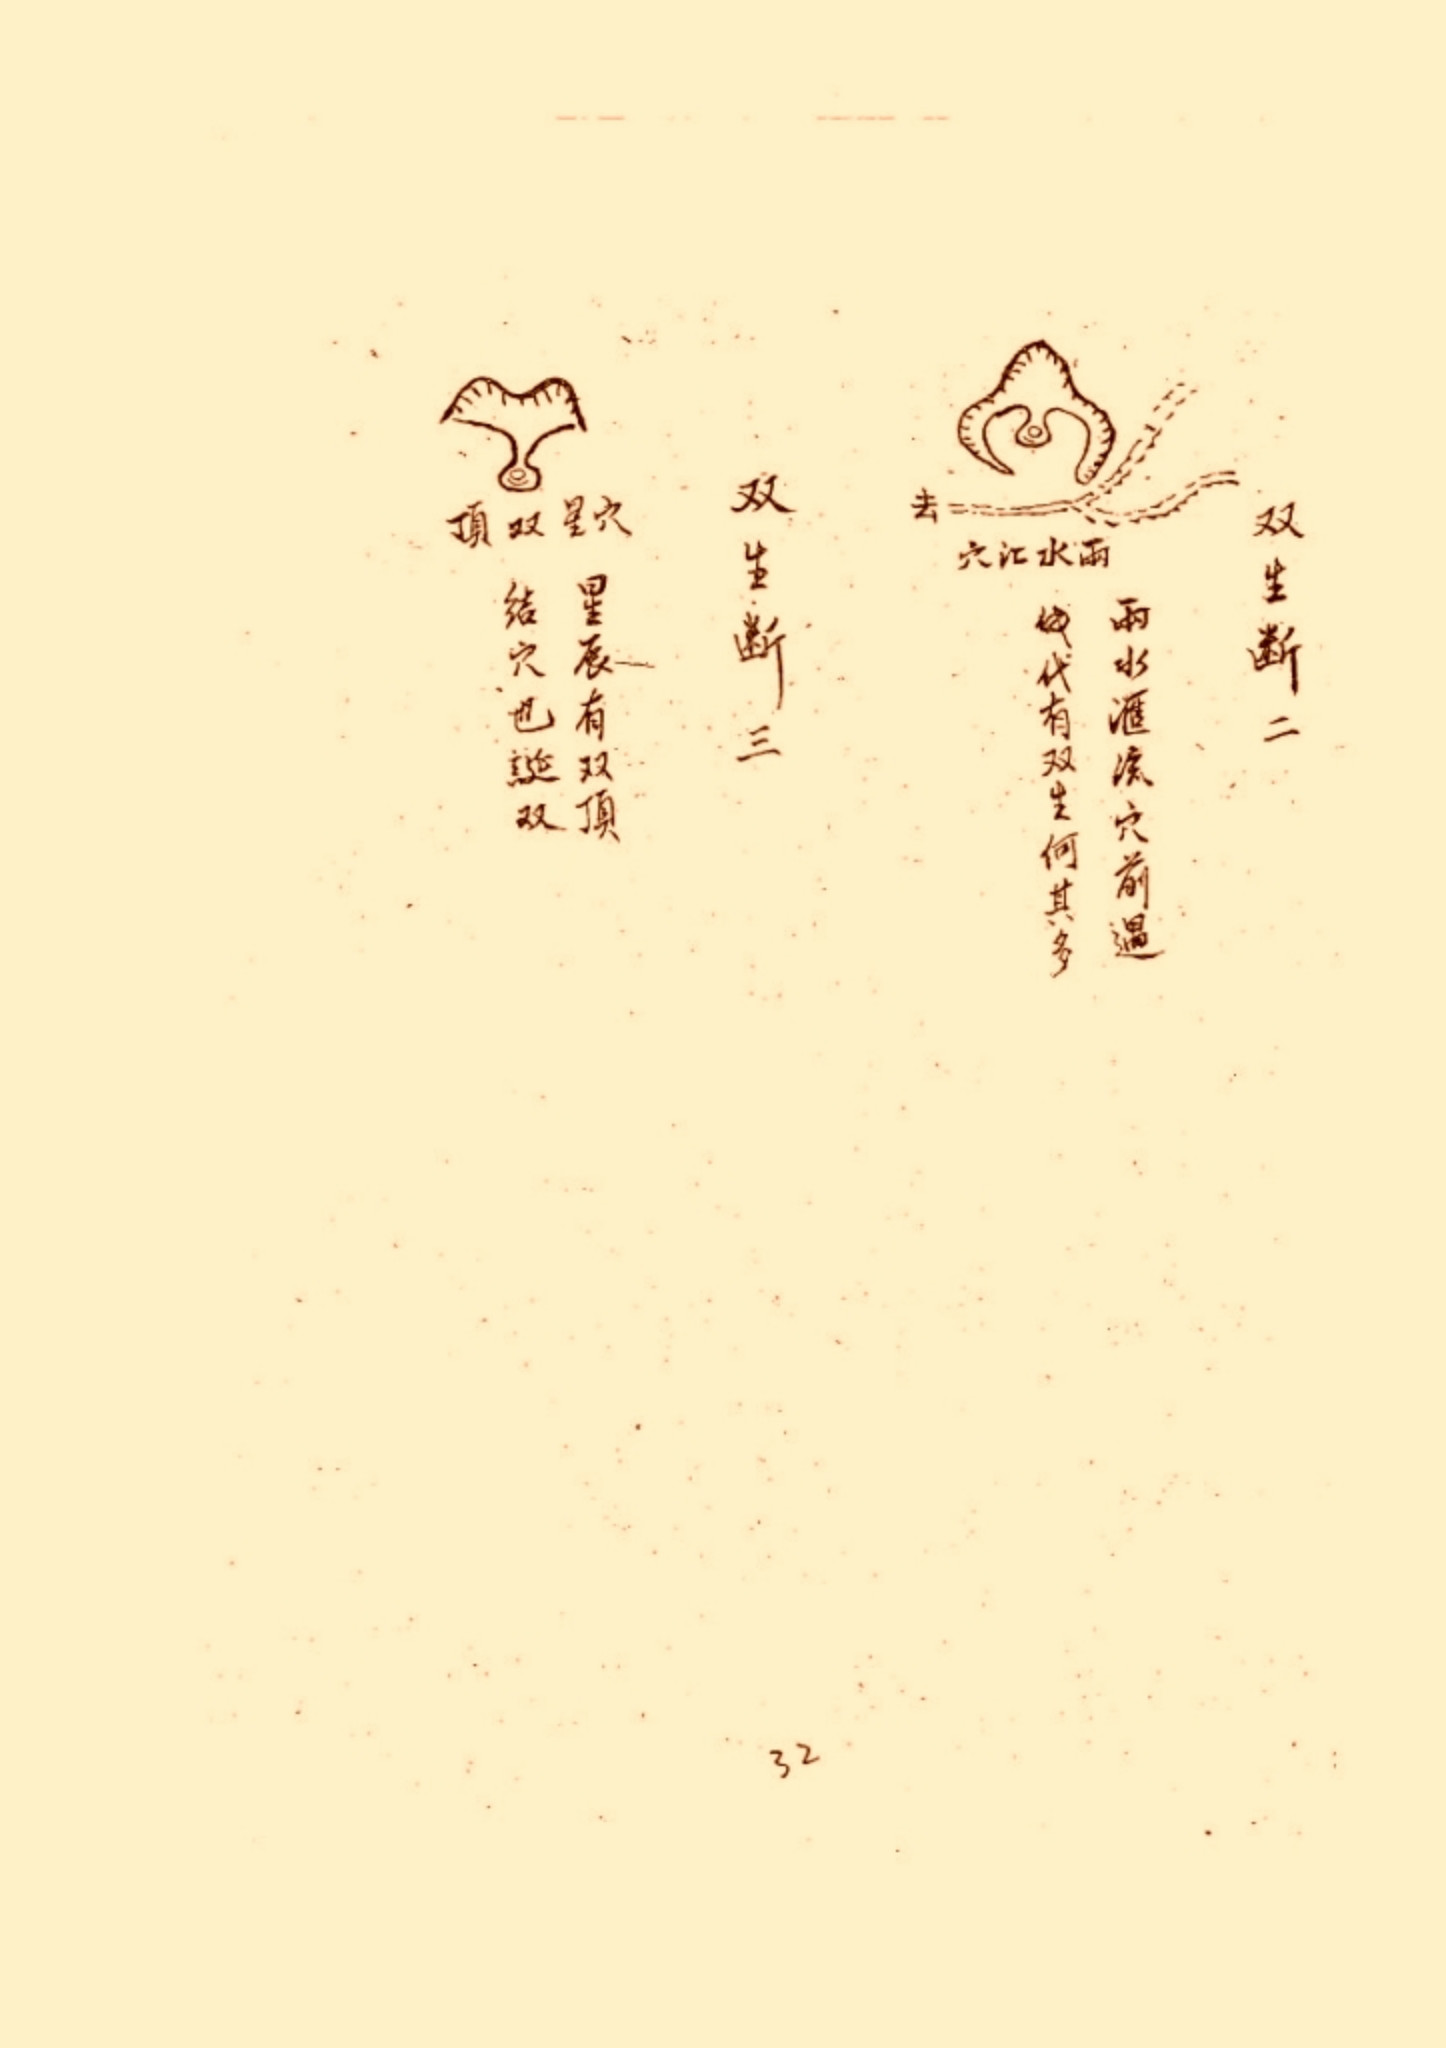 双生断二
去
兩水汇穴
兩水滙流穴前過
代有双生何其多
双生断三
穴星双頂
星辰有双頂
结穴也誕双
32